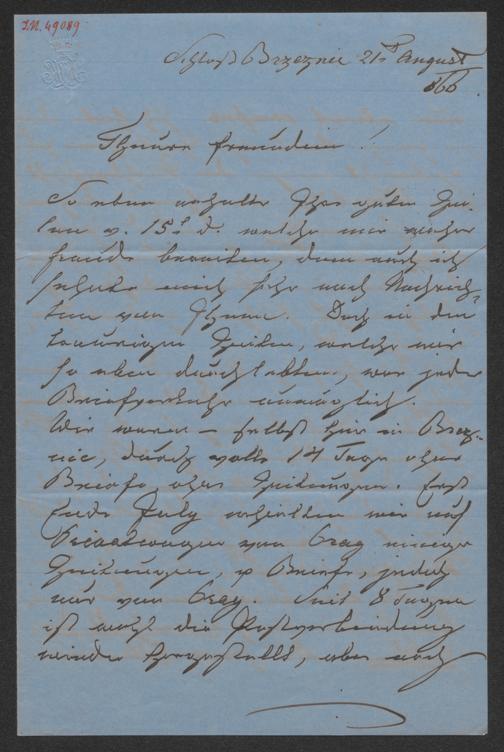 I.N. 49089
Schloß Brzeznic 21t August
866
Theure Freundin!
So eben erhalte Ihre guten Zei-
len v. 15t d. welche mir wahre
Freude bereiten, denn auch ich
sehnte mich sehr nach Nachrich-
ten von Ihnen. Doch in den
traurigen Zeiten, welche wir
so eben durchlebten, war jeder
Briefverkehr unmöglich.
Wir waren – selbst hier in Brzez-
nic, durch volle 14 Tage ohne
Briefe ohne Zeitungen. Erst
Ende July erhielten wir auf
Privatwegen von Prag einige
Zeitungen, u Briefe, jedoch
nur von Prag. Seit 8 Tagen
ist wohl die Postverbindung
wieder hergestellt, aber noch